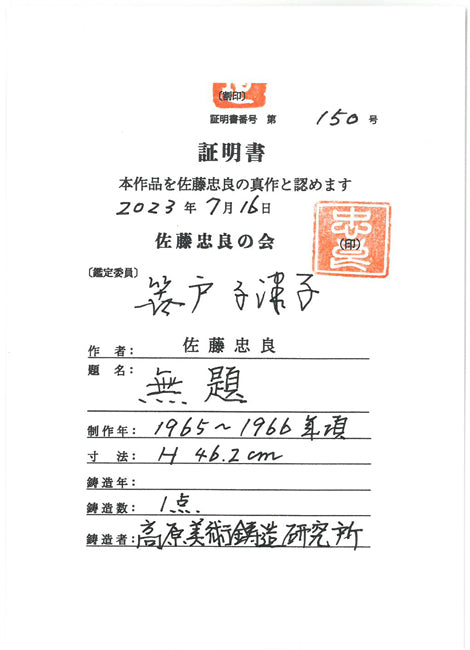 〔割印〕
証明書番号 第 150 号
証明書
本作品を佐藤忠良の真作と認めます
2023 年 7 月 16 日
佐藤忠良の会
(印)
忠良
〔鑑定委員〕
戸 子津子
作 者: 佐藤忠良
題 名: 無題
制作年: 1965～1966 年頃
寸 法: H 46.2cm
鋳造年:
鋳造数: 1点.
鋳造者: 高原美術鋳造研究所